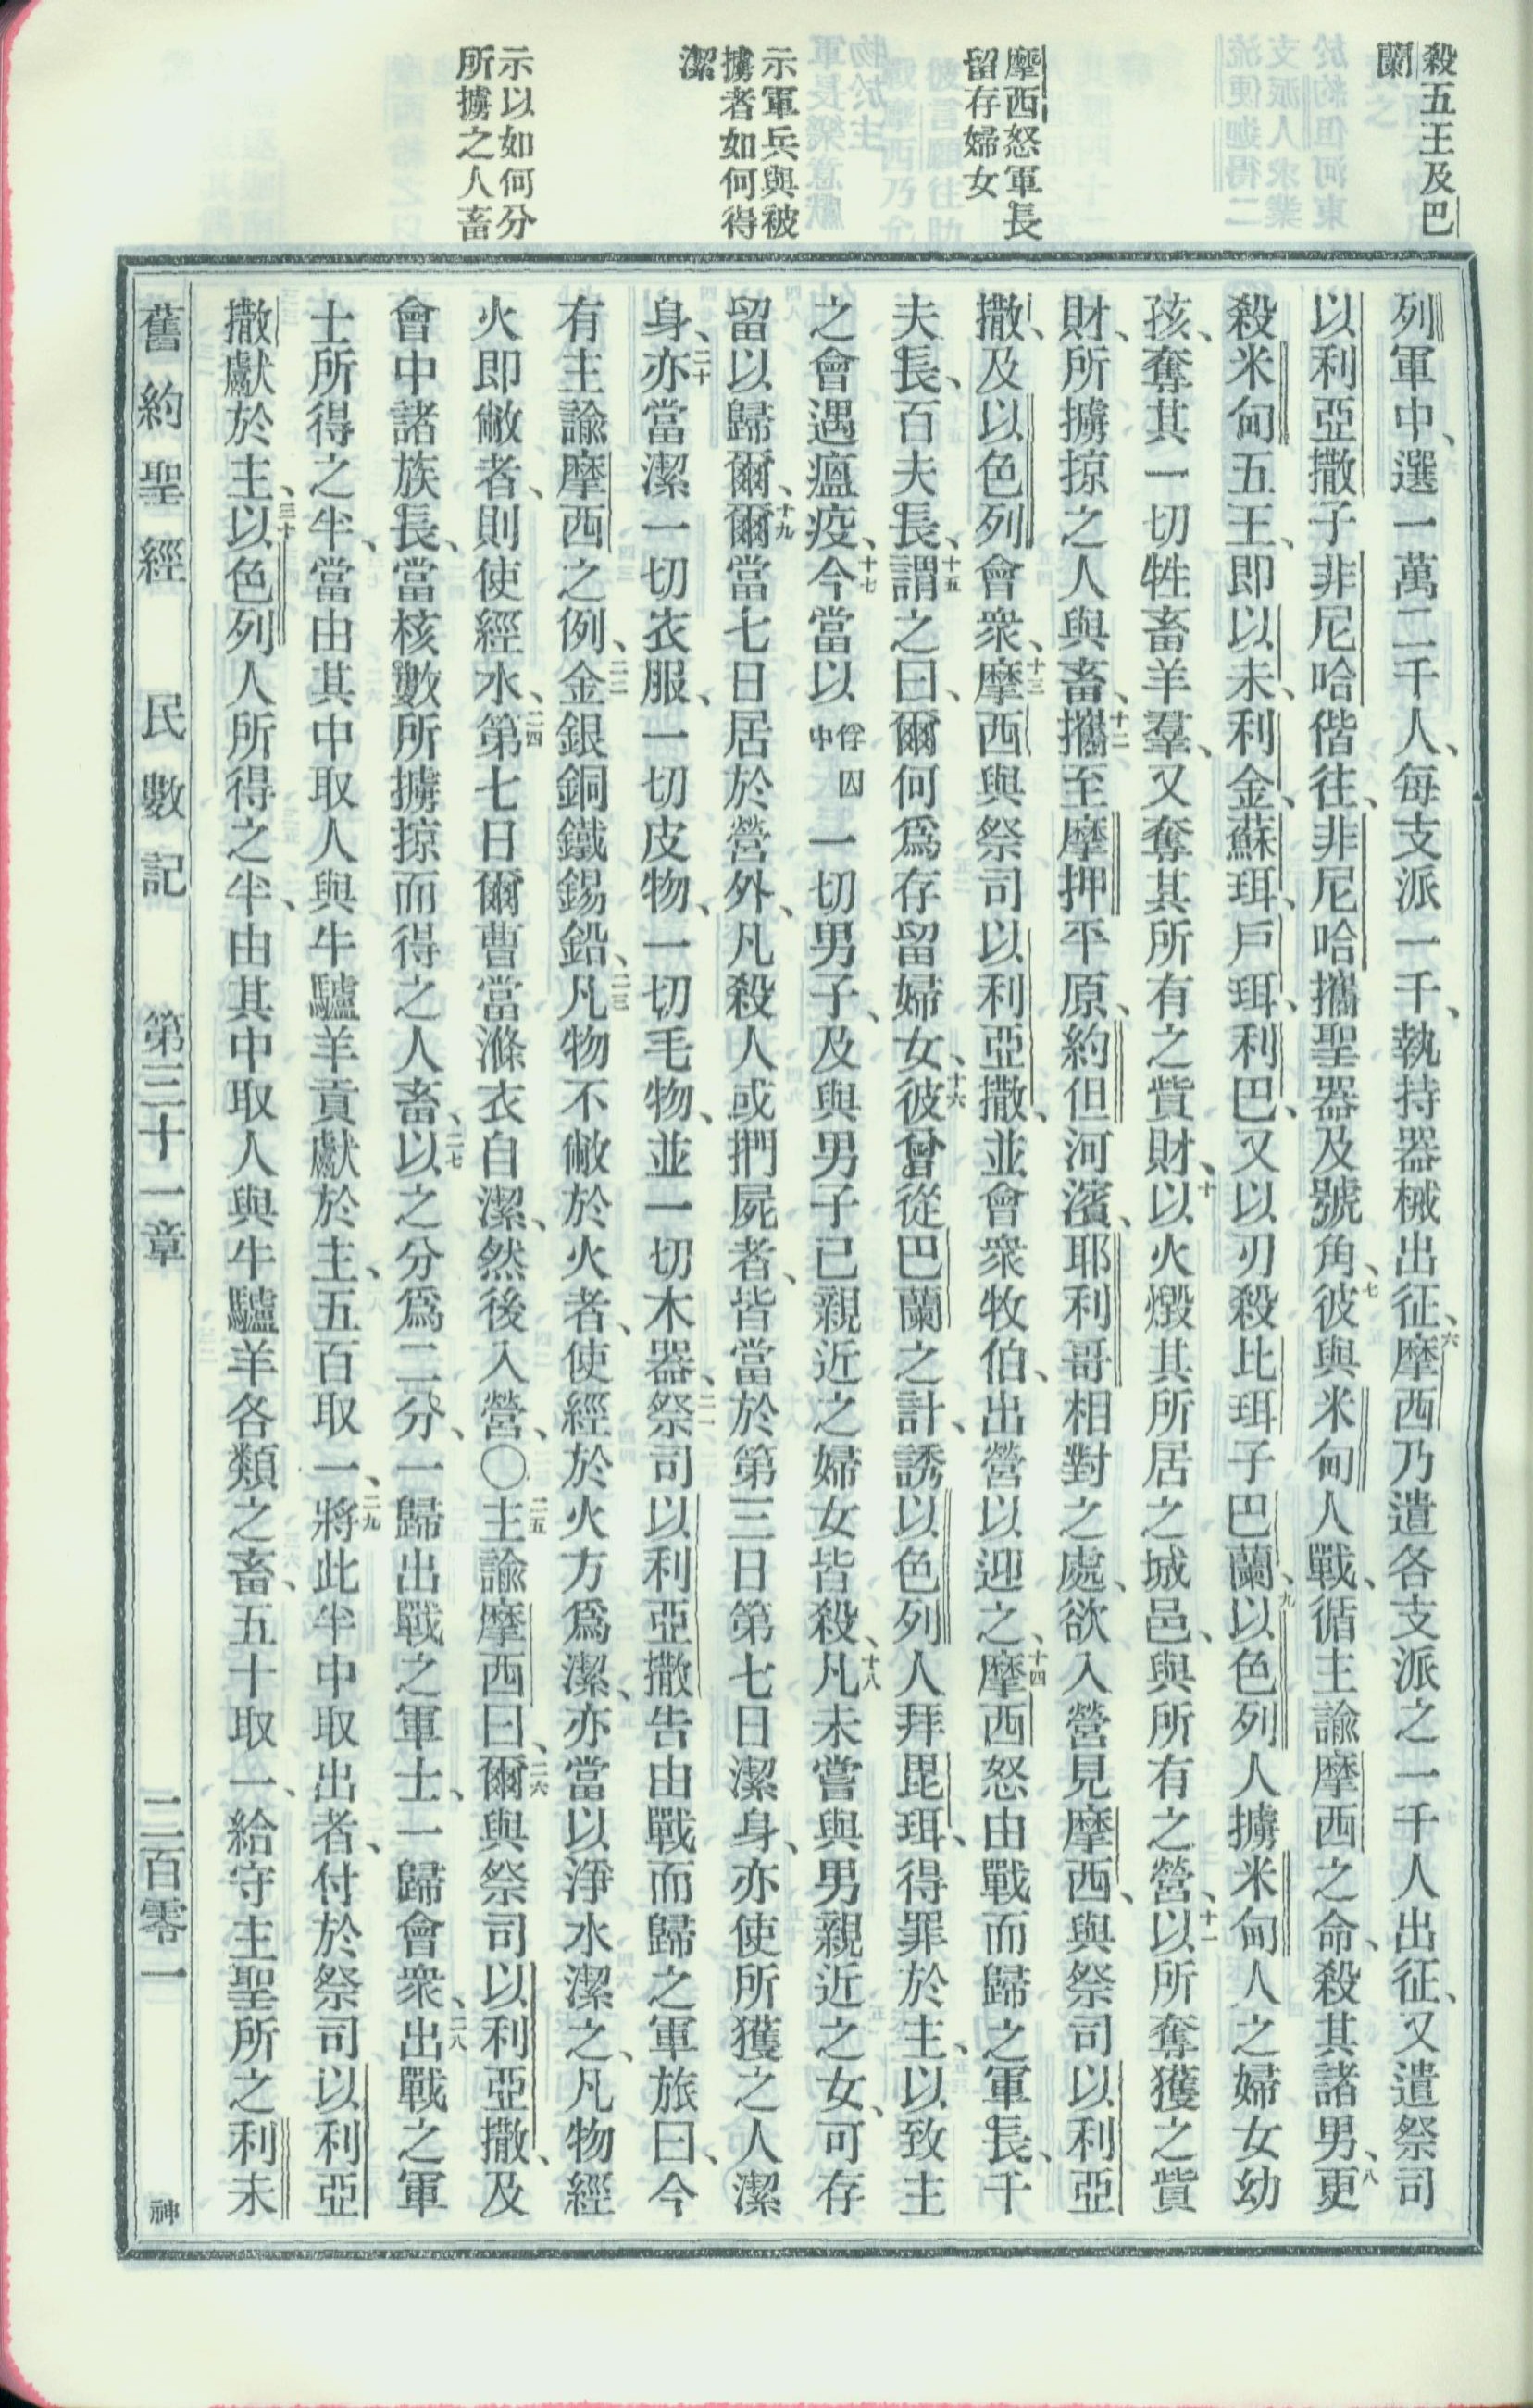 殺五王及巴
蘭
摩西怒軍長
留存婦女
示軍兵與被
擄者如何得
潔
示以如何分
所擄之人畜
列軍中、選一萬二千人、每支派一千、執持器械出征、六摩西乃遣各支派之一千人出征、又遣祭司
以利亞撒子非尼哈偕往、非尼哈攜聖器及號角、七彼與米甸人戰、循主諭摩西之命、殺其諸男、八更
殺米甸五王、即以未、利金、蘇珥、戶珥、利巴、又以刃殺比珥子巴蘭、九以色列人擄米甸人之婦女幼
孩、奪其一切牲畜羊羣、又奪其所有之貲財、十以火燬其所居之城邑、與所有之營、十一以所奪獲之貲
財、所擄掠之人與畜、十二攜至摩押平原、約但河濱、耶利哥相對之處、欲入營見摩西、與祭司以利亞
撒、及以色列會衆、十三摩西與祭司以利亞撒、並會衆牧伯、出營以迎之、十四摩西怒由戰而歸之軍長、千
夫長、百夫長、十五謂之曰、爾何爲存留婦女、十六彼曾從巴蘭之計、誘以色列人拜毘珥、得罪於主、以致主
之會遇瘟疫、十七今當以俘囚中一切男子、及與男子已親近之婦女皆殺、十八凡未嘗與男親近之女、可存
留以歸爾、十九爾當七日居於營外、凡殺人或捫屍者、皆當於第三日第七日潔身、亦使所獲之人潔
身、二十亦當潔一切衣服、一切皮物、一切毛物、並一切木器、二一祭司以利亞撒告由戰而歸之軍旅曰、今
有主諭摩西之例、二二金銀銅鐵錫鉛、二三凡物不敝於火者、使經於火方爲潔、亦當以淨水潔之、凡物經
火即敝者、則使經水、二四第七日爾曹當滌衣自潔、然後入營、〇二五主諭摩西曰、二六爾與祭司以利亞撒、及
會中諸族長、當核數所擄掠而得之人畜、二七以之分爲二分、一歸出戰之軍士、一歸會衆、二八出戰之軍
士所得之半、當由其中取人與牛驢羊貢獻於主、五百取一、二九將此半中取出者、付於祭司以利亞
撒獻於主、三十以色列人所得之半、由其中取人與牛驢羊各類之畜、五十取一、給守主聖所之利未
舊約聖經　民數記　第三十一章　二百零一　神